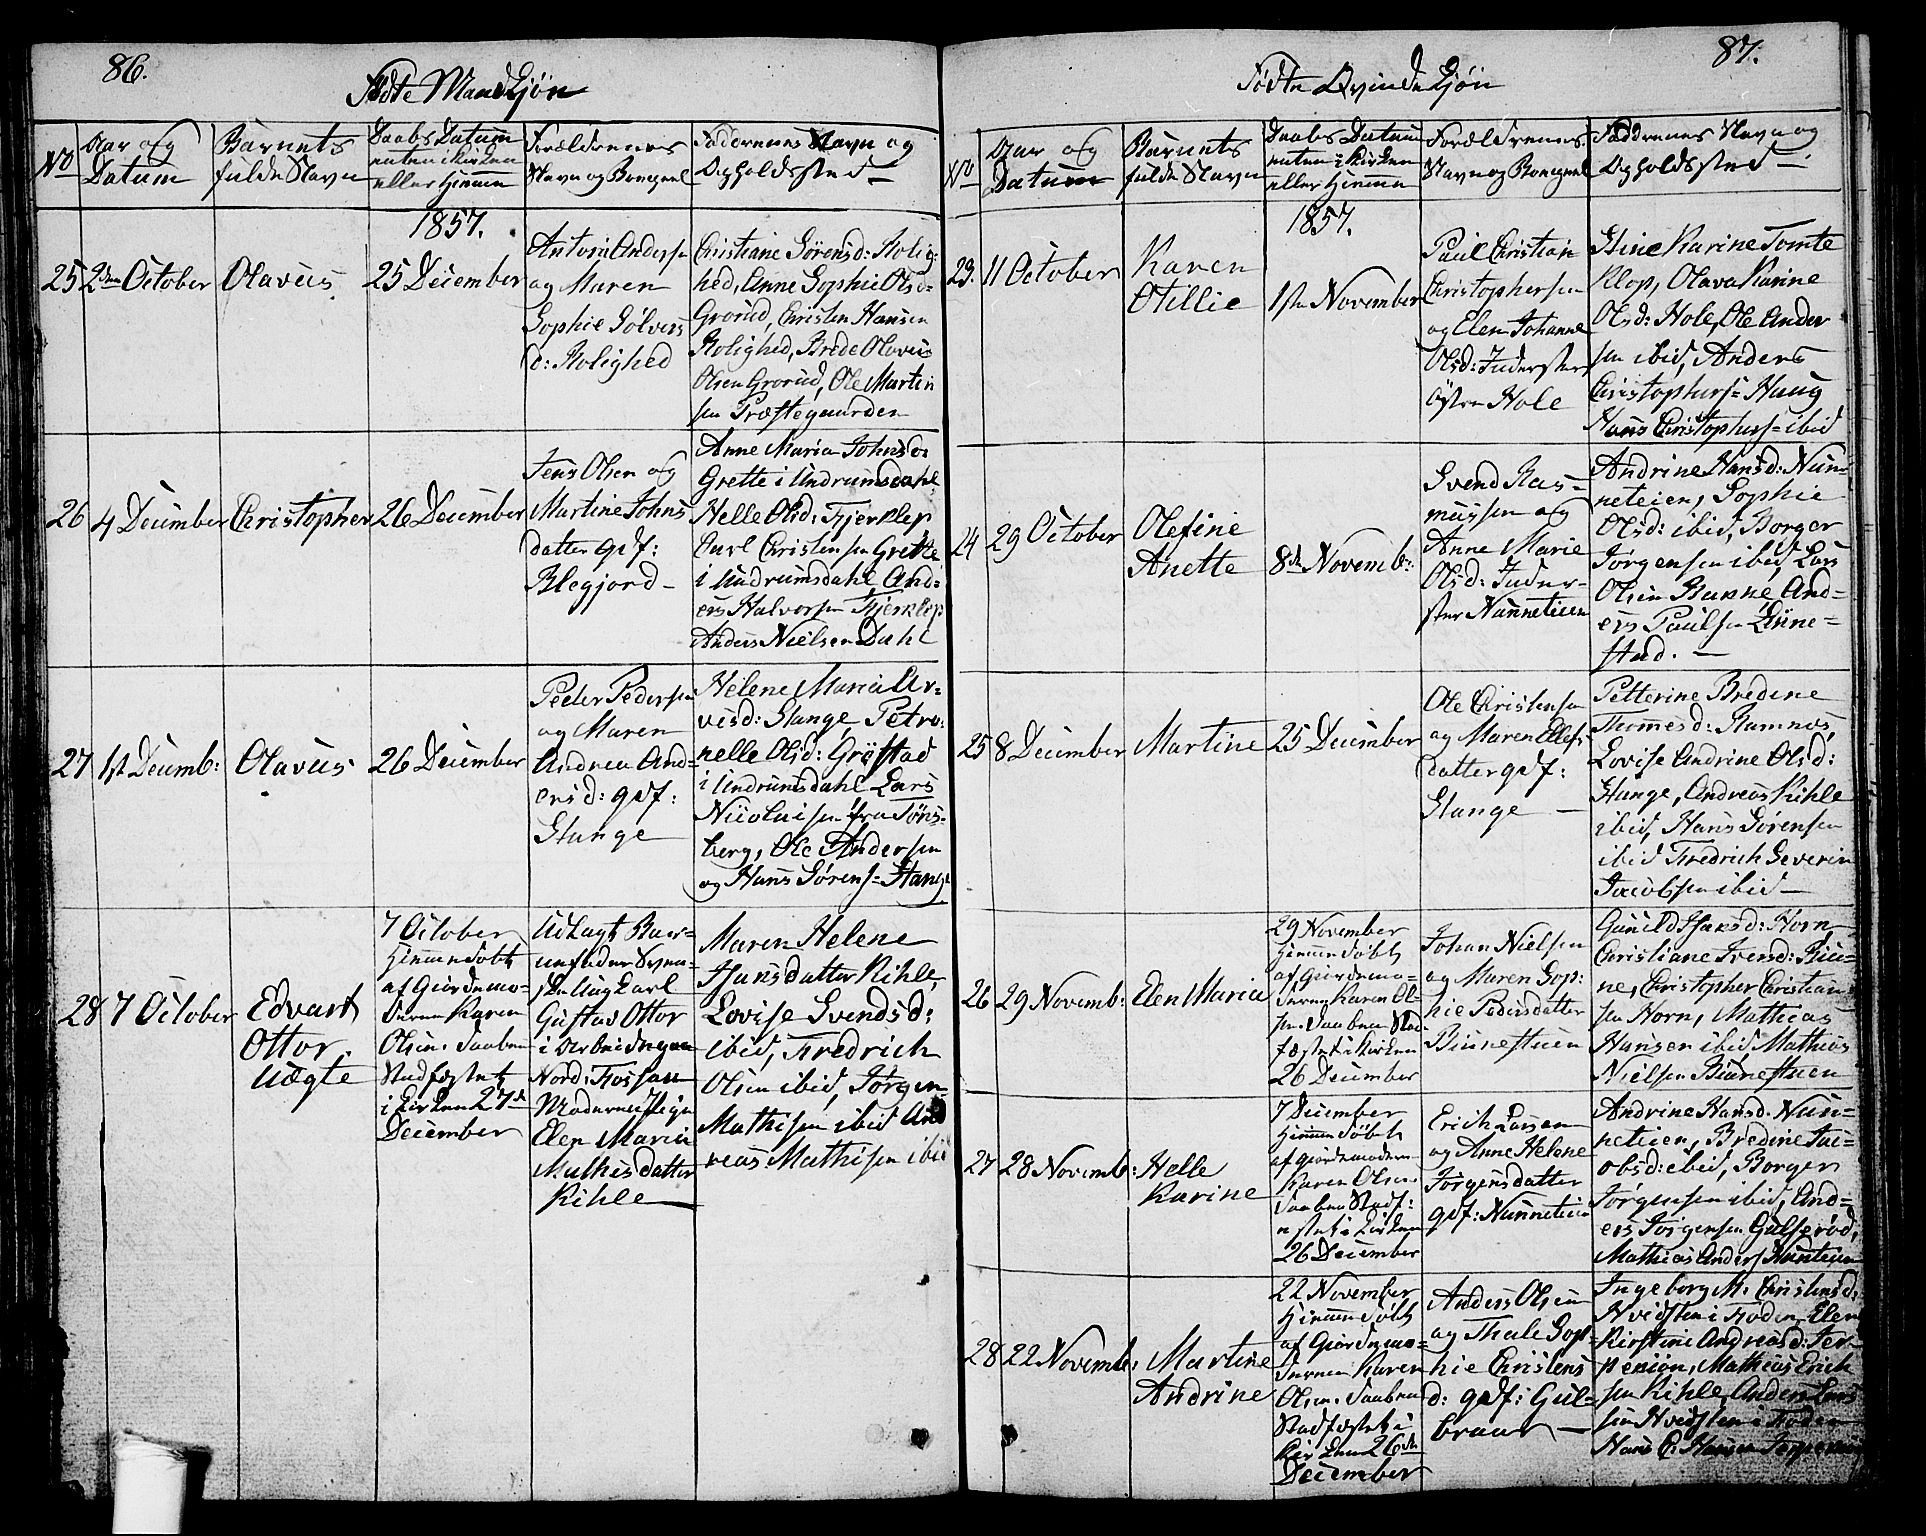 86.
Fødte MandKjøn
No
Aar og
Datum
Barnets
fulde Navn
Daabs Datum
enten i Kirken
eller Hjemme
Forældrenes
Navn og Boepæl
Faddernes Navn og
Opholdssted
1857.
25
2den October
Olavus
25 December
Anton Anders=
og Maren
Sophie Sølvers
d: Rolighed
Christiane Sørensd: Rolig=
hed, Anne Sophie Olsd=
Grorud, Christen Hansen
Rolighed, Brede Olavus
Olsen Grorud, Ole Martin
sen Præstegaarden
26
4 December
Christopher
26 December
Jens Olsen og
Martine Johns
datter gdf:
Blegjord
Anne Maria Johnsd:
Grette i Undrumsdahl
Helle Olsd: Fjerklep
Carl Christensen Grette
i Undrumsdahl And=
ers Halvorsen Fjerklep
Anders Nielsen Dahl
27
1st Decemb:
Olavus
26 December
Peder Pedersen
og Maren
Andrea And=
ersd: gdf:
Stange
Helene Maria Ar=
visd: Stange, Petro=
nelle Olsd: Grøstad
i Undrumsdahl Lars
Nicolaisen fra Tøns=
berg, Ole Andersen
og Hans Sørens= Stange
28
7 October
Edvart
Ottor.
Uægte
7 October
Hjemmedøbt
af Giordemo=
deren Karen
Olsen. Daaben
Stadfæstet
i Kirken 27de
December
Udlagt Bar=
nefader
Ung Carl
Gustav Ottor
i Arbeide paa
Nord: Fossan
Moderne Pige
Elen Maria
Mathisdatter
Kihle
Maren Helene
Hansdatter Kihle,
Lovise Svendsd:
ibid, Fredrich
Olsen ibid, Jørgen
Mathisen ibid And
reas Mathisen ibid
87.
Fødte QvindeKjøn
No
Aar og
Datum
Barnets
fulde Navn
Daabs Datum
enten i Kirken
eller Hjemme
Forældrenes
Navn og Boepæl
Faddernes Navn og
Opholdssted
1857.
23.
11 October
Karen
Otillie
1ste November
Paul Christian
Christophersen
og Elen Johanne
Olsd: Inderster
Østen Hole
Stine Karine Tomte
Klop, Olava Karine
Olsd: Hole, Ole Ander
sen ibid, Anders
Christophers= Haug
Hans Christophers= ibid
24
29 October
Olefine
Anette
8de Novemb:
Svend Ras=
mussen og
Anne Marie
Olsd: Inder=
ster Nunneteien
Andrine Hansd: Nun=
neteien, Sophie
Olsd: ibid, Borger
Jørgensen ibid, Lars
Olsen Bakne And=
ers Paulsen Linne=
stad.
25
8 December
Martine
25 December
Ole Christensen
og Maren Ellefs
datter gdf:
Stange
Petterine Bredine
Thomesd: Ramnæs,
Lovise Andrine Olsd:
Stange, Andreas Kihle
ibid, Hans Sørensen
ibid Fredrich Severin
Jacobsen ibid
26
29 Novemb:
Elen Maria
29 November
Hjemmedøbt
af Giordemo=
deren Karen Ol=
sen. Daaben Stad=
fæstet i Kirken
26 December
Johan Nielsen
og Maren Sop:
hie Pedersdatter
Binnestuen
Gunild Hansd: Horn,
Christiane Ivensd: Bin=
ne, Christopher Christian=
sen Horn, Mathias
Hansen ibid Mathias
Nielsen Binnestuen
27
28 Novemb:
Helle
Karine
7 December
Hjemmedøbt
af Giordemoderen
Karen Olsen.
Daaben Stadf:
æstet i Kirken
26 December
Erich Larsen
og Anne Helene
Jørgensdatter
gdf: Nunneteien
Andrine Hansd: Nun=
neteien, Bredine Jac=
obsd: ibid, Borger
Jørgensen ibid, And=
ers Jørgensen Gulserød,
Mathias Anders= Nunneteien
28
22 Novemb:
Martine
Andrine
22 November
Hjemmedøbt
af Giordemo=
deren Karen
Olsen. Daaben
Stadfæstet i
Kirken 26de
December
Anders Olsen
og Thale Sop=
hie Christens
d: gdf: Gul=
braar
Ingeborg M. Christensd:
Hvidsten i Foden, Elen
Kirstine Andreasd: Jer=
penion, Mathias Erich
sen Kihle, Anders Lars
sen Hvidsten i Foden
Hans C. Hansen